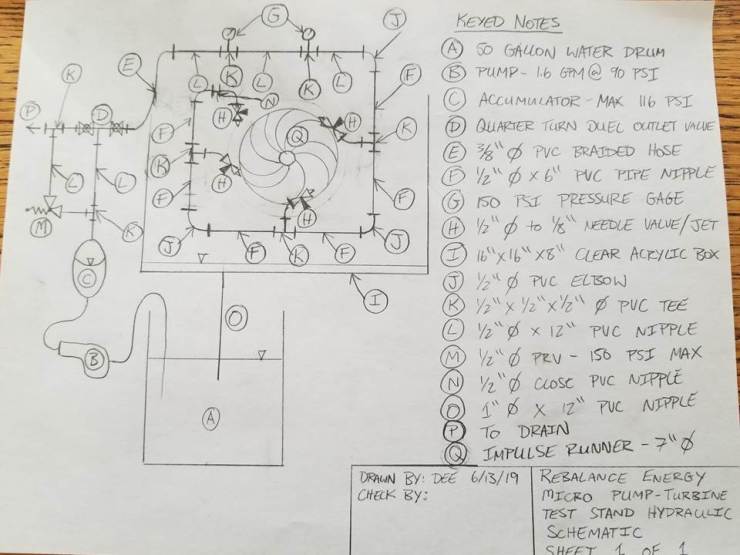 KEYED NOTES
A 50 GALLON WATER DRUM
B PUMP - 1.6 GPM @ 90 PSI
C ACCUMULATOR - MAX 116 PSI
D QUARTER TURN DUEL OUTLET VALVE
E 3/8" Ø PVC BRAIDED HOSE
F 1/2" Ø X 6" PVC PIPE NIPPLE
G 150 PSI PRESSURE GAGE
H 1/2" Ø to 1/8" NEEDLE VALVE/JET
I 16" X 16" X 8" CLEAR ACRYLIC BOX
J 1/2" Ø PVC ELBOW
K 1/2" X 1/2" X 1/2" Ø PVC TEE
L 1/2" Ø X 12" PVC NIPPLE
M 1/2" Ø PRV - 150 PSI MAX
N 1/2" Ø CLOSE PVC NIPPLE
O 1" Ø X 12" PVC NIPPLE
P TO DRAIN
Q IMPULSE RUNNER - 7" Ø
G J
E L K L K L F
K N
P D F H Q H K
K
L L F H F
M K H
J F K F J
C
I
O
B
A
DRAWN BY: DEE 6/13/19
CHECK BY:
REBALANCE ENERGY
MICRO PUMP-TURBINE
TEST STAND HYDRAULIC
SCHEMATIC
SHEET 1 OF 1